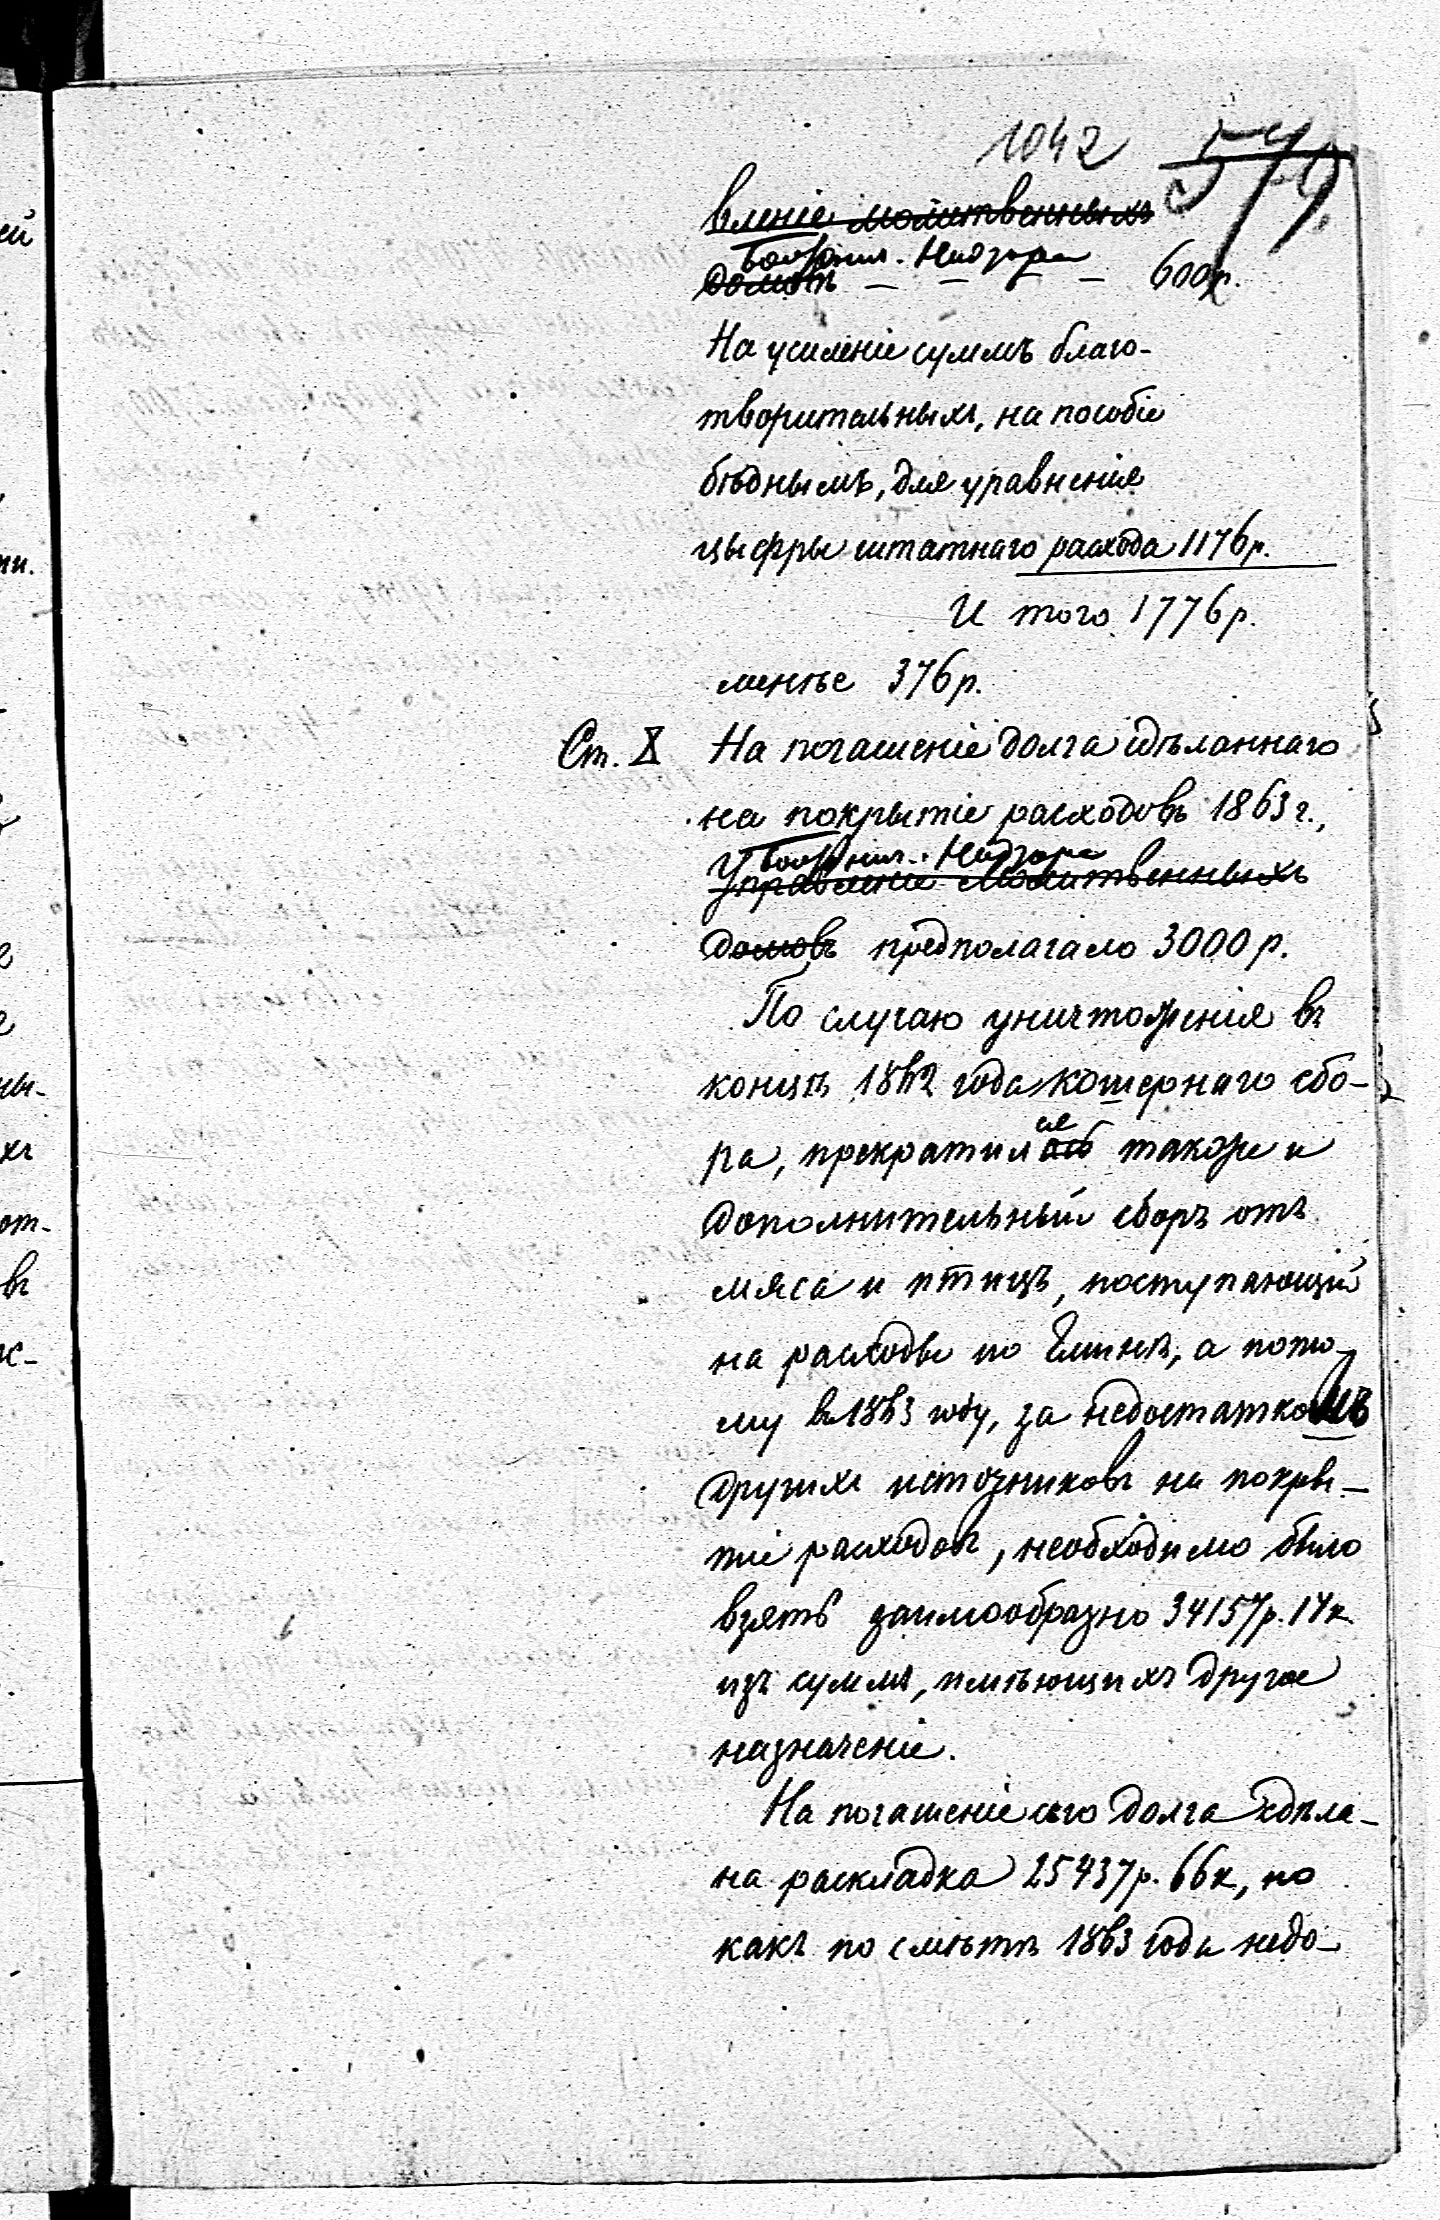 1042 579.
вленіе молитвенныхъ
Божнич. Надзора
домовъ — — — — 600р.
На усиленіе суммъ благо-
творительныхъ, на пособіе
бѣднымъ, для уравненія
цыфры штатнаго расхода 1176р.
И того 1776р.
менѣе 376р.
Ст. X На погашеніе долга сдѣланнаго
на покрытіе расходовъ 1863 г.,
Божнич. Надзоръ
Управленіе Молитвенныхъ
домовъ предполагало 3000р.
По случаю уничтоженія въ
концѣ 1862 года кошернаго сбо-
ра, прекратился также и
дополнительный сборъ отъ
мяса и птицъ, поступающій
на расходы по Общинѣ, а пото-
му въ 1863 году, за недостаткомъ
другихъ источниковъ на покры-
тіе расходовъ, необходимо было
взять заимообразно 34157р. 17к.
изъ суммъ, имѣющихъ другое
назначеніе.
На погашеніе сего долга сдѣла-
на раскладка 25437р. 66к, но
какъ по смѣтѣ 1863 года недо-